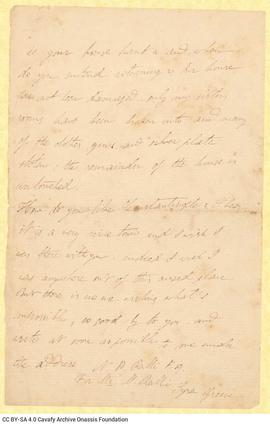 is your house burnt & and when
do you intend returning? Our house
has not been damaged only my sisters
rooms have been broken into and many
of the clothes, guns and silver plate
stolen - the remainder of the house is
untouched.
How do you like Constantinople? I hear
it is a very nice town and I wish I
was there with you - indeed I wish I
was anywhere out of this cursed place
But there is no use wishing what's
impossible, so good by to you - and
write as soon as possible to me under
the address N. D. Ralli
For Mr. N. Ralli
Syra Greece
CC BY-SA 4.0 Cavafy Archive Onassis Foundation